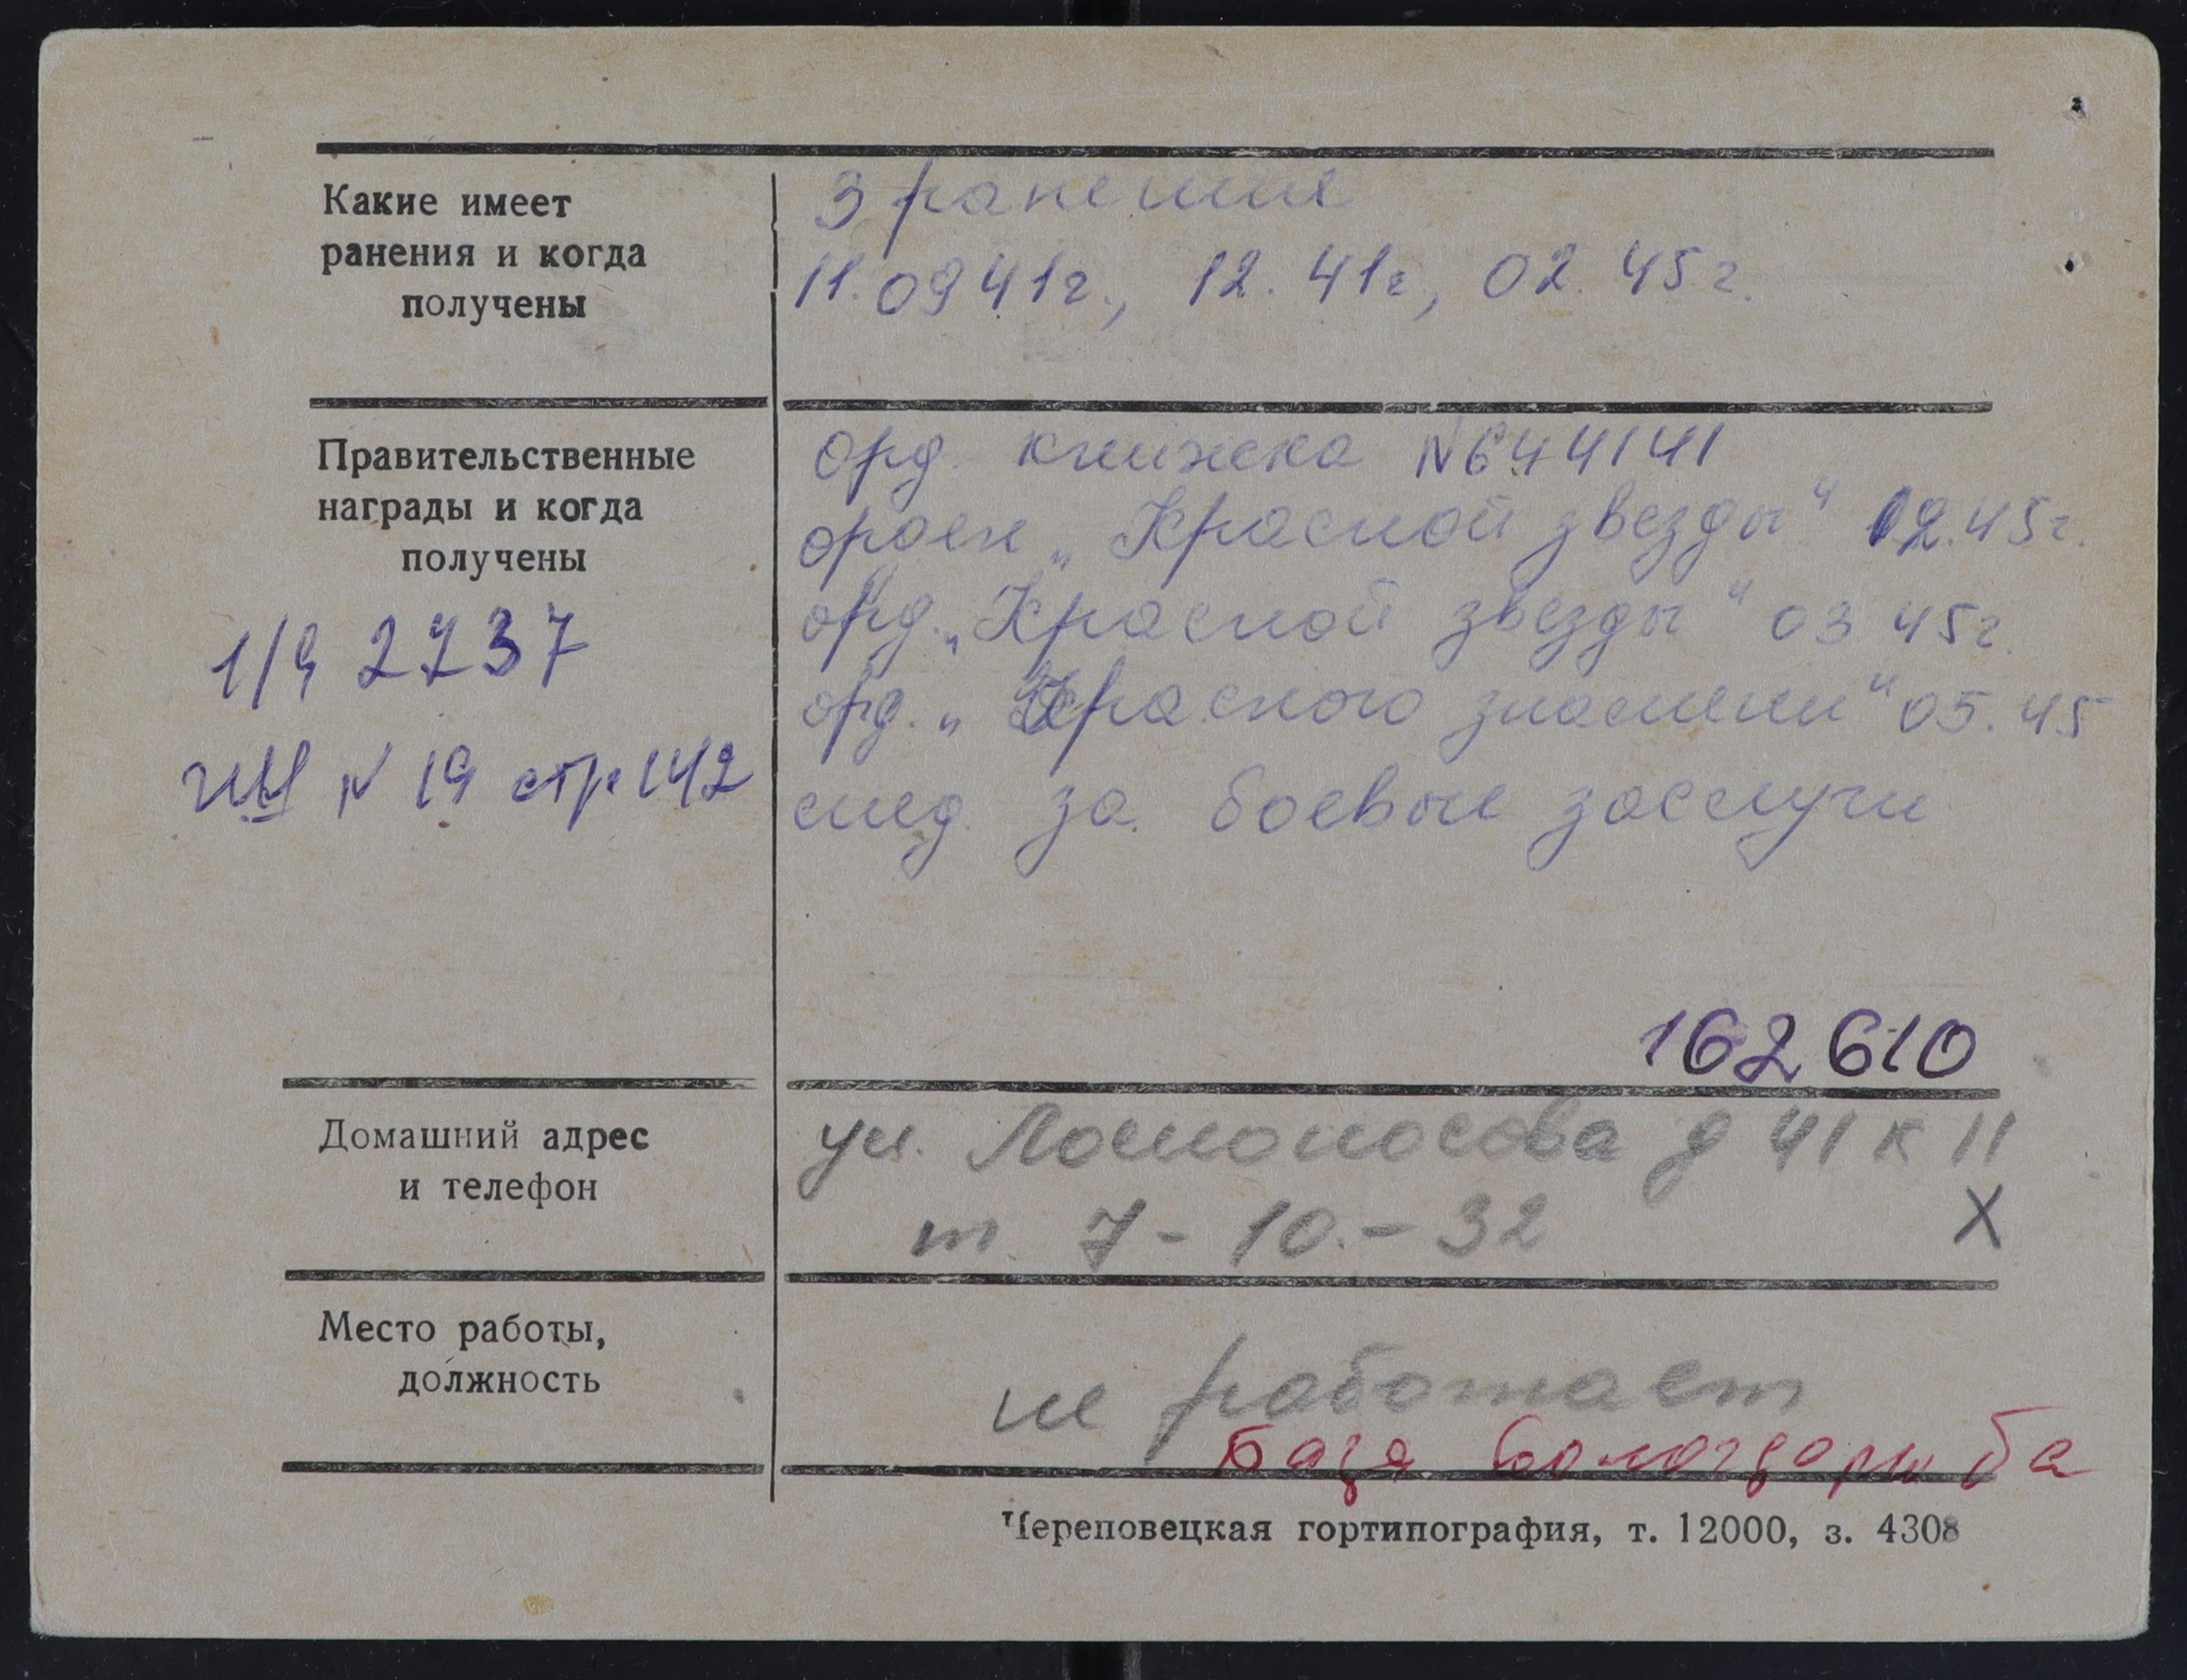 Какие имеет
ранения и когда
получены
3 ранения
11.09 41г., 12. 41г., 02. 45г.
Правительственные
награды и когда
получены
1/9 2737
N 19 стр 142
орд. книжка N644141
орден „Красной звезды“ 02.45г.
орд. „Красной звезды“ 03 45г.
орд. „Красного знамени“ 05.45
мед. за боевые заслуги
162610
Домашний адрес
и телефон
ул. Ломоносова д 41 к 11
т. 7-10-32
X
Место работы,
должность
не работает
База Вологдарыба
Череповецкая гортипография, т. 12000, з. 4308